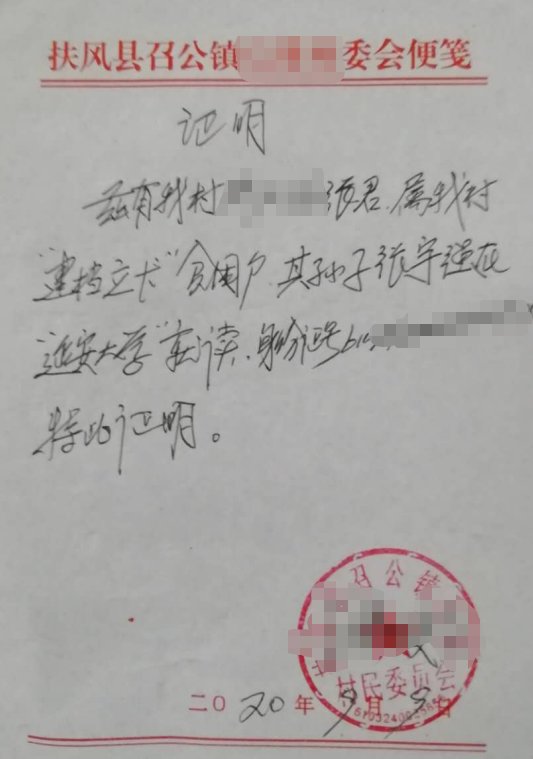 扶风县召公镇 委会便笺
证明
兹有我村 张君,属我村
"建档立卡"贫困户,其孙子张宇强在
"延安大学"在读,身份证号61
特此证明。
召公镇
村民委员会
二〇20年9月9日